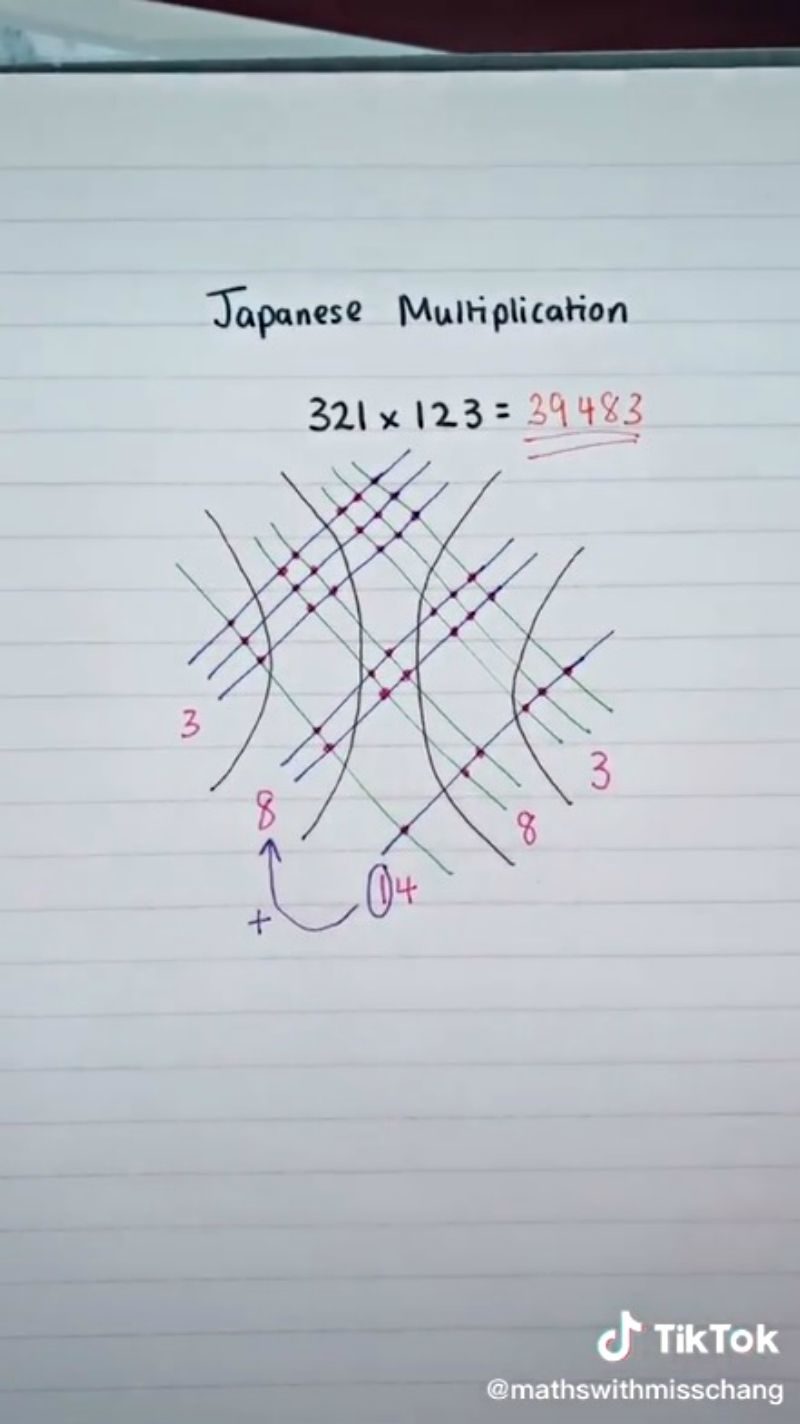 Japanese Multiplication
321 x 123 = 39483
3
8
+
14
8
3
TikTok
@mathswithmisschang